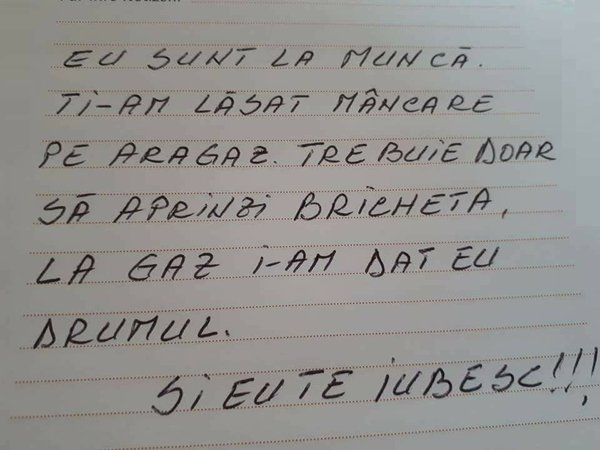 EU SUNT LA MUNCĂ.
TI-AM LĂSAT MÂNCARE
PE ARAGAZ. TREBUIE DOAR
SĂ APRINZI BRICHETA,
LA GAZ I-AM DAT EU
DRUMUL.
SI EU TE IUBESC!!!